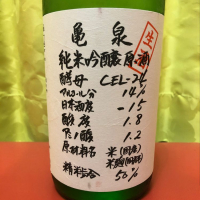 亀泉
生
純米吟醸原酒
酵母 CEL-24
アルコール分 14%
日本酒度 -15
酸度 1.8
アミノ酸 1.2
原材料名 米(国産)
米麹(国産米)
精米歩合 50%